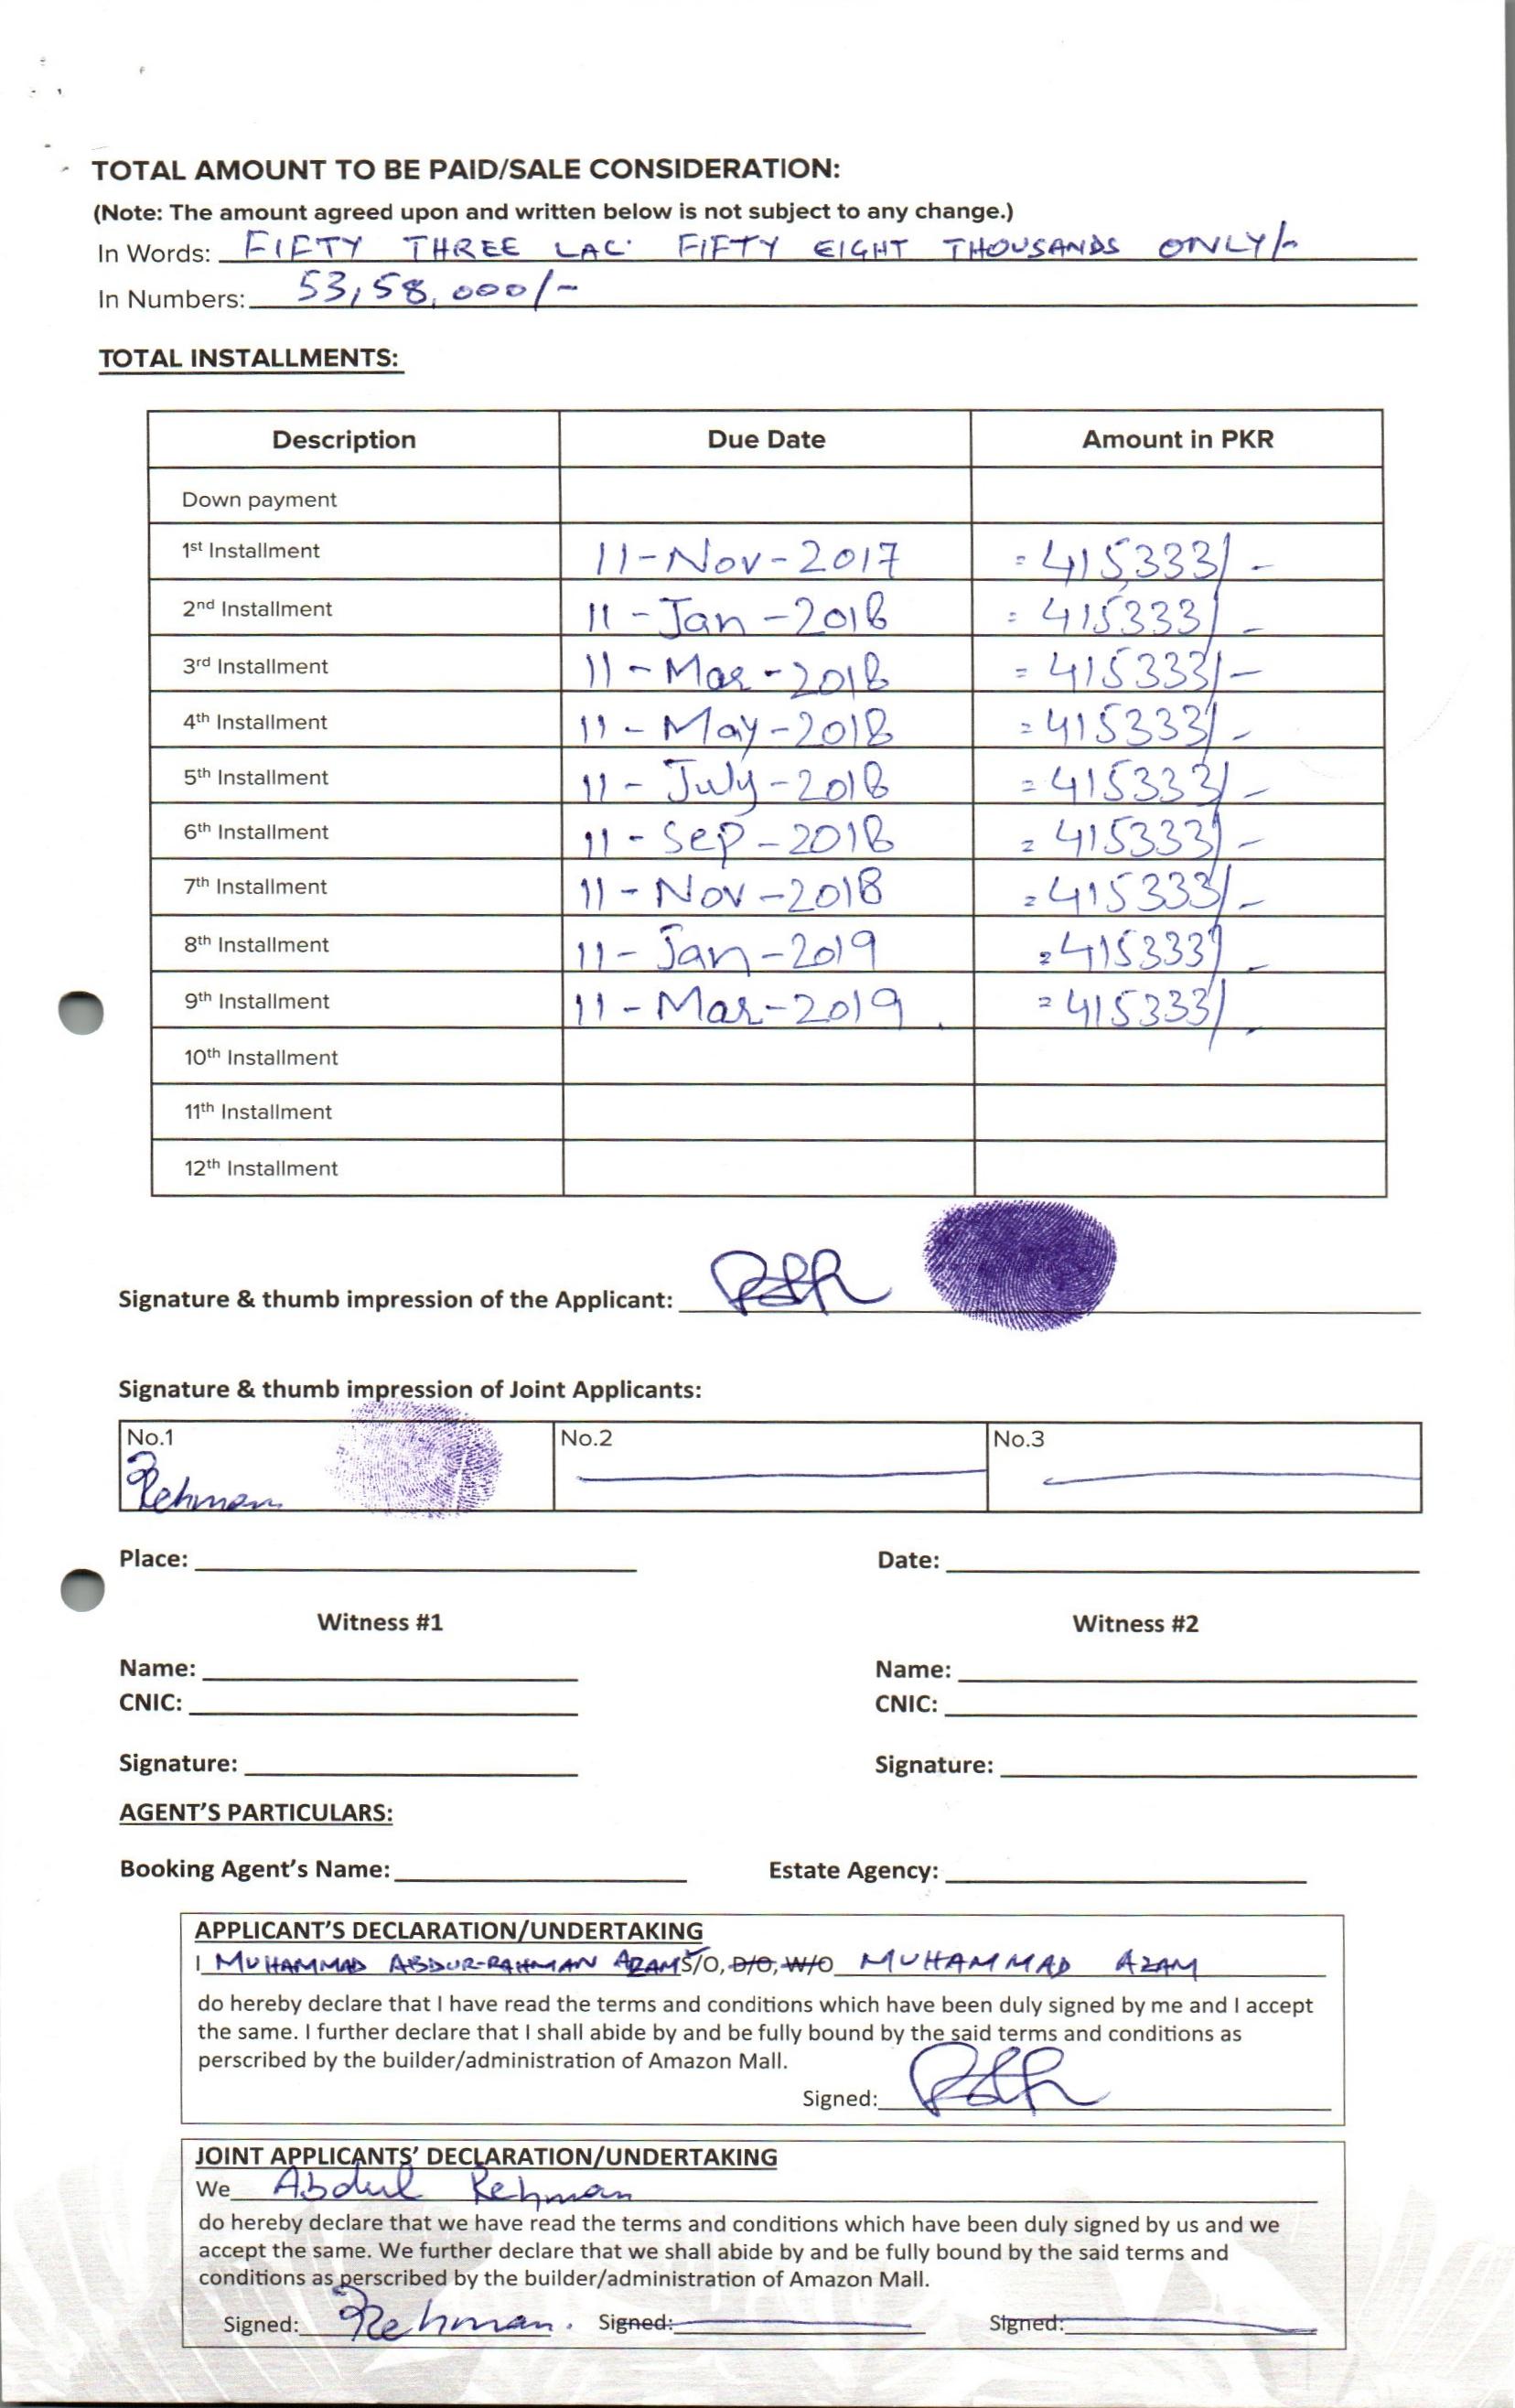 TOTAL AMOUNT TO BE PAID/SALE CONSIDERATION:
(Note: The amount agreed upon and written below is not subject to any change.)
In Words: FIFTY THREE LAC FIFTY EIGHT THOUSANDS ONLY/-
In Numbers: 53,58,000/-
TOTAL INSTALLMENTS:
Description Due Date Amount in PKR
Down payment
1st Installment 11-Nov-2017 = 415,333/-
2nd Installment 11-Jan-2018 = 415333/-
3rd Installment 11-Mar-2018 = 415333/-
4th Installment 11-May-2018 = 415333/-
5th Installment 11-July-2018 = 415333/-
6th Installment 11-Sep-2018 = 415333/-
7th Installment 11-Nov-2018 = 415333/-
8th Installment 11-Jan-2019 = 415333/-
9th Installment 11-Mar-2019 = 415333/-
10th Installment
11th Installment
12th Installment
Signature & thumb impression of the Applicant:
Signature & thumb impression of Joint Applicants:
No.1 No.2 No.3
Rehman
Place: Date:
Witness #1 Witness #2
Name: Name:
CNIC: CNIC:
Signature: Signature:
AGENT'S PARTICULARS:
Booking Agent's Name: Estate Agency:
APPLICANT'S DECLARATION/UNDERTAKING
I MUHAMMAD ABDUR-RAHMAN AZAM S/O, D/O, W/O MUHAMMAD AZAM
do hereby declare that I have read the terms and conditions which have been duly signed by me and I accept
the same. I further declare that I shall abide by and be fully bound by the said terms and conditions as
perscribed by the builder/administration of Amazon Mall.
Signed:
JOINT APPLICANTS' DECLARATION/UNDERTAKING
We Abdul Rehman
do hereby declare that we have read the terms and conditions which have been duly signed by us and we
accept the same. We further declare that we shall abide by and be fully bound by the said terms and
conditions as perscribed by the builder/administration of Amazon Mall.
Signed: Rehman. Signed: Signed: